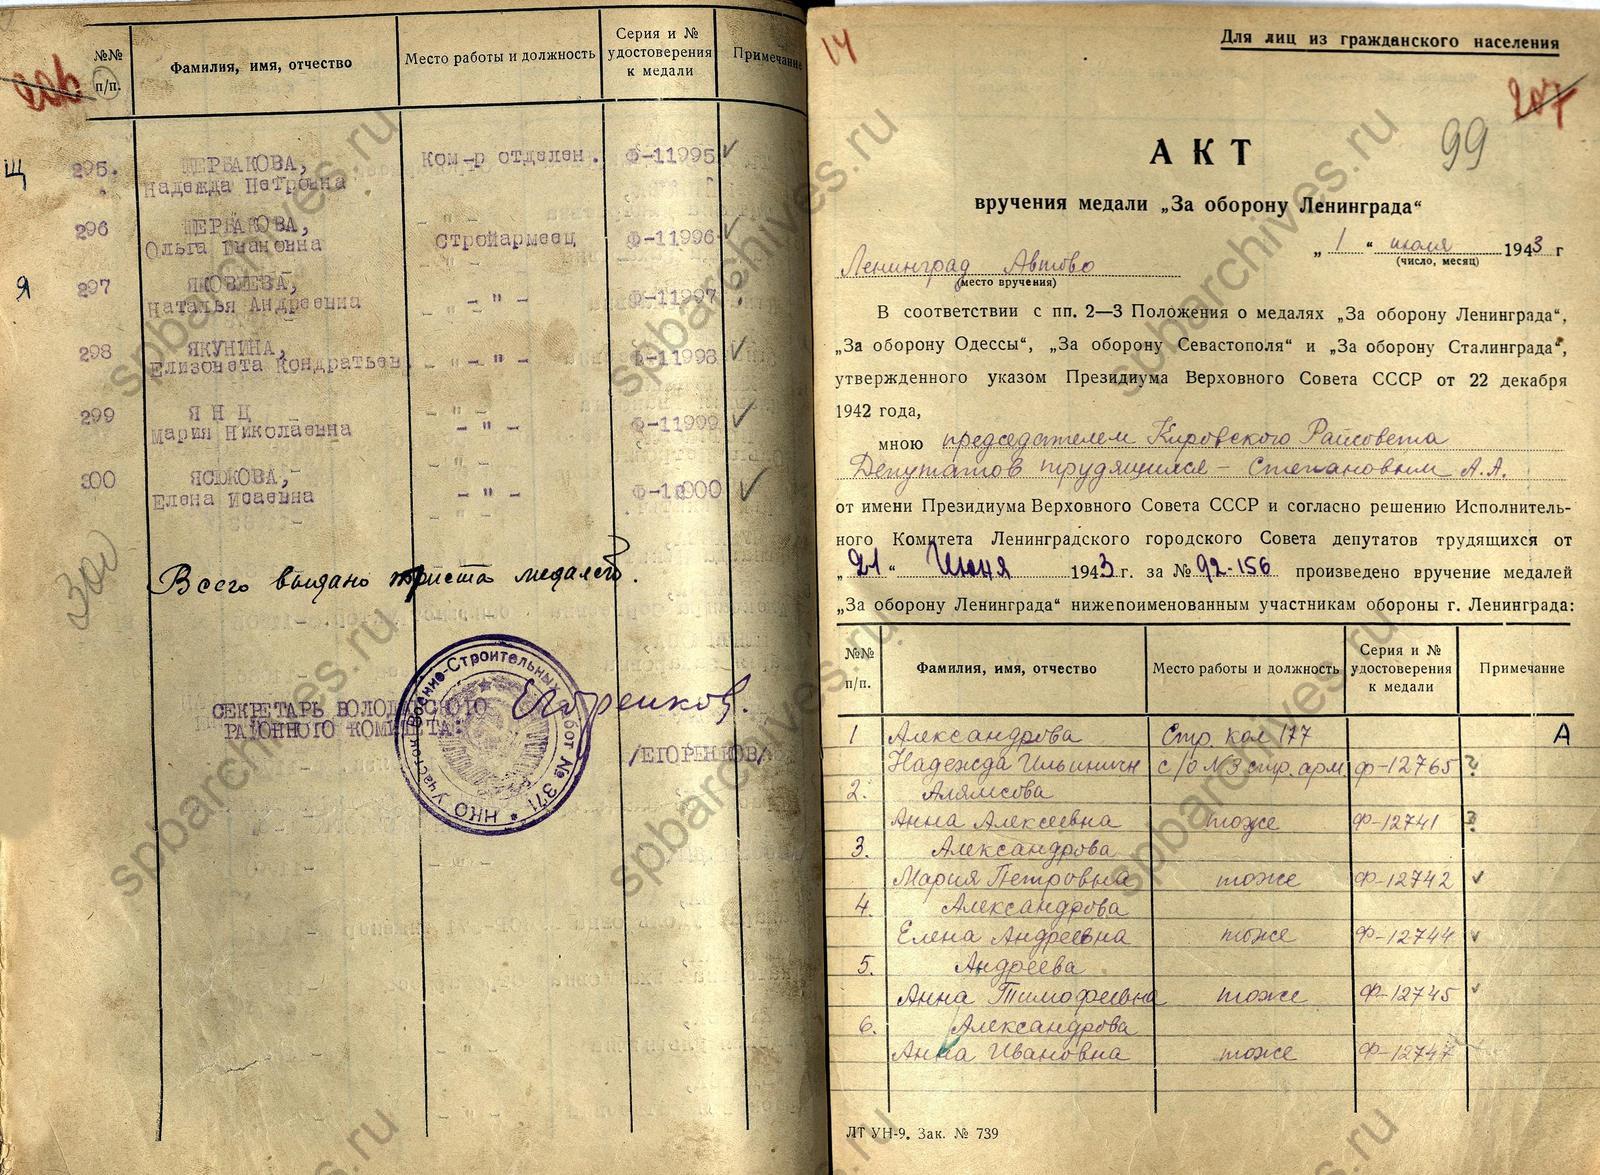 №№ п/п.
Фамилия, имя, отчество
Место работы и должность
Серия и № удостоверения к медали
Примечание
Щ
295.
ЩЕРБАКОВА,
Надежда Петровна
Ком-р отделен.
Ф-11995
296
ЩЕРБАКОВА,
Ольга Ивановна
Стройармеец
Ф-11996
Я
297
ЯКОВЛЕВА,
Наталья Андреевна
- " -
Ф-11997
298
ЯКУНИНА,
Елизовета Кондратьев.
- " -
Ф-11998
299
Я Н Ц
Мария Николаевна
- " -
Ф-11999
300
ЯСЮКОВА,
Елена Исаевна
- " -
Ф-12000
300
Всего выдано триста медалей.
СЕКРЕТАРЬ ВОЛОДАРСКОГО
РАЙОННОГО КОМИТЕТА:
/ЕГОРЕНКОВ/
НКО Участок Военно-Строительных работ № 371
14
Для лиц из гражданского населения
207
99
АКТ
вручения медали „За оборону Ленинграда“
„ 1 “ июля 1943 г
(число, месяц)
Ленинград Автово
(место вручения)
В соответствии с пп. 2—3 Положения о медалях „За оборону Ленинграда“,
„За оборону Одессы“, „За оборону Севастополя“ и „За оборону Сталинграда“,
утвержденного указом Президиума Верховного Совета СССР от 22 декабря
1942 года,
мною председателем Кировского Райсовета
Депутатов трудящихся - Степановым А.А.
от имени Президиума Верховного Совета СССР и согласно решению Исполнитель-
ного Комитета Ленинградского городского Совета депутатов трудящихся от
„21“ Июня 1943 г. за № 92-156 произведено вручение медалей
„За оборону Ленинграда“ нижепоименованным участникам обороны г. Ленинграда:
№№ п/п.
Фамилия, имя, отчество
Место работы и должность
Серия и № удостоверения к медали
Примечание
1 Александрова Стр. кол 177 А
Надежда Ильинич с/о №3 стр. арм Ф-12765 ?
2. Алямсова
Анна Алексеевна тоже Ф-12741 ?
3. Александрова
Мария Петровна тоже Ф-12742
4. Александрова
Елена Андреевна тоже Ф-12744
5. Андреева
Анна Тимофеевна тоже Ф-12745
6. Александрова
Анна Ивановна тоже Ф-12747
ЛТ УН-9. Зак. № 739
spbarchives.ru